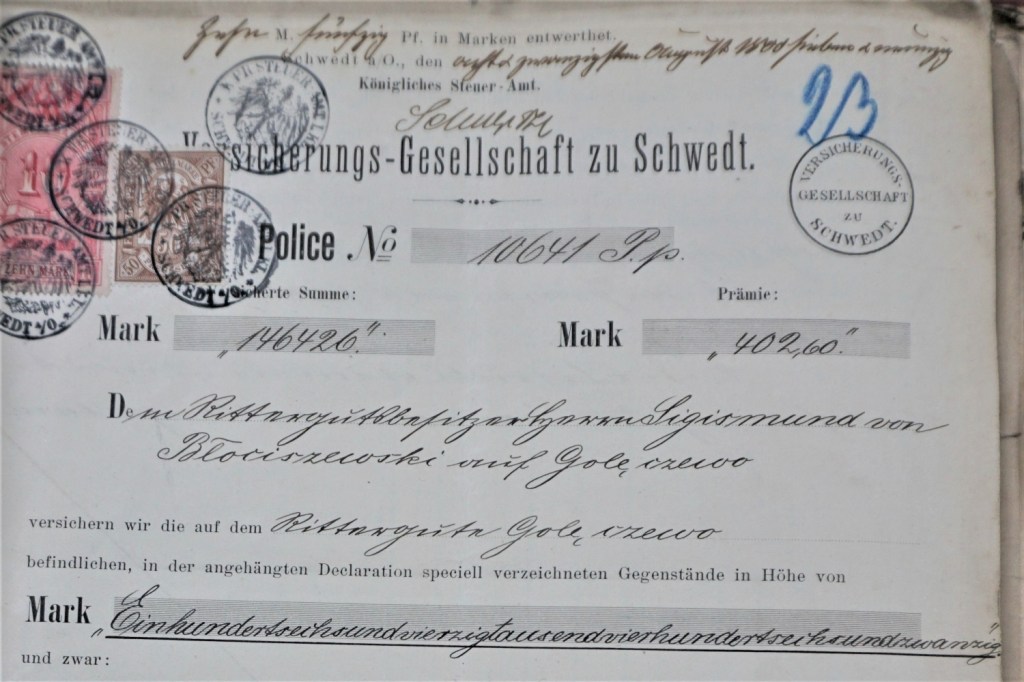 Zehn M. fünfzig Pf. in Marken entwerthet.
Schwedt a/O., den acht & zwanzigsten August 1800 sieben & neunzig
Königliches Steuer-Amt.
Versicherungs-Gesellschaft zu Schwedt.
VERSICHERUNGS-
GESELLSCHAFT
ZU
SCHWEDT.
1
ZEHN MARK
50
SCHWEDT a/O.
Police No 10641 P.p.
2/3
Versicherte Summe:
Prämie:
Mark „146426."
Mark „402,60."
Dem Rittergutsbesitzer Herrn Sigismund von
Błociszewski auf Golęczewo
versichern wir die auf dem Rittergute Golęczewo
befindlichen, in der angehängten Declaration speciell verzeichneten Gegenstände in Höhe von
Mark „Einhundertsechsundvierzigtausendvierhundertsechsundzwanzig"
und zwar: